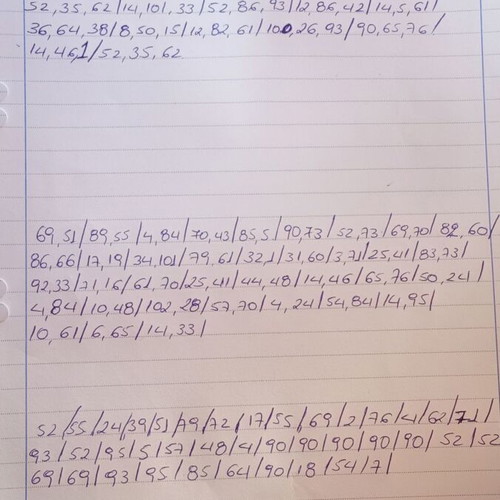 52, 35, 62/14, 101, 33/52, 86, 93/12, 86, 42/14, 5, 61/
36, 64, 38/8, 50, 15/12, 82, 61/100, 26, 93/90, 65, 76/
14, 46, 1/52, 35, 62
69, 51/89, 55/4, 84/70, 43/85, 5/90, 73/52, 73/69, 70/82, 60/
86, 66/17, 19/34, 101/79, 61/32, 1/31, 60/3, 71/25, 41/83, 73/
92, 33/71, 16/61, 70/25, 41/44, 48/14, 46/65, 76/50, 24/
4, 84/10, 48/102, 28/57, 70/4, 24/54, 84/14, 95/
10, 61/6, 65/14, 33/
52/55/24/39/51/79/72/17/55/69/2/76/4/62/71/
93/52/95/5/57/48/4/90/90/90/90/90/52/52
69/69/93/95/85/64/90/18/54/7/